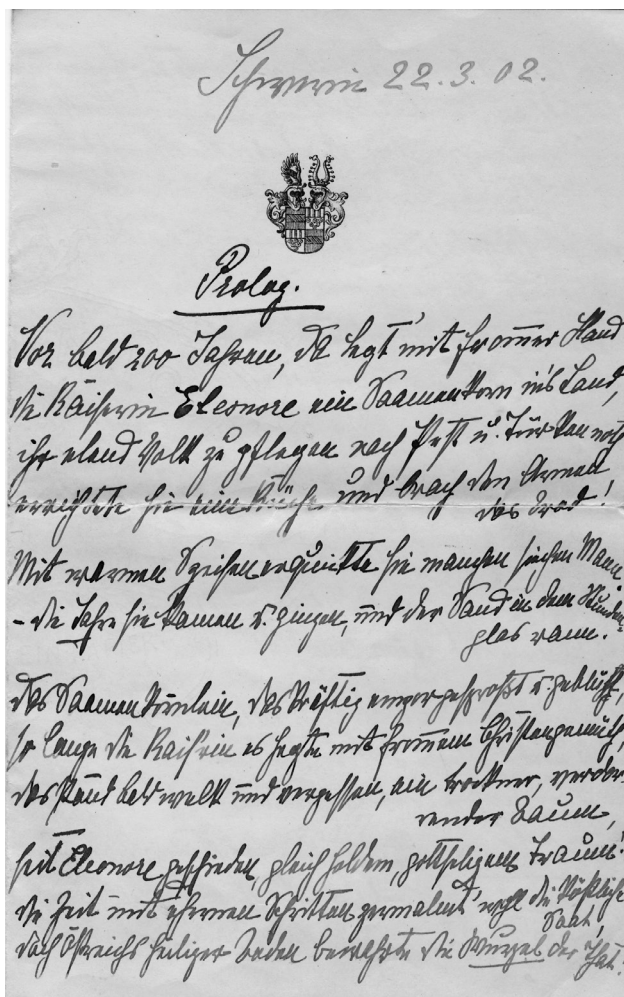 Schwerin 22.3.02.
Prolog.
Vor bald 200 Jahren, da legt' mit frommer Hand
die Kaiserin Eleonore ein Saamenkorn in's Land,
ihr elend Volk zu pflegen nach Pest u. Türkennoth
errichtete sie eine Küche und brach den Armen
das Brod!
Mit warmen Speisen erquickte sie manchen siechen Mann
– die Jahre sie kamen u. gingen, und der Sand in dem Stunden-
glas rann.
Das Saamenkörnlein, das kräftig emporgesproßt u. geblüht,
so lange die Kais'rin es hegte mit frommem Christengemüth,
das stand bald welk und vergessen, ein trockner, verdor-
render Baum,
seit Eleonore geschieden, gleich holdem, gottseligem Traum!
die Zeit mit ehernen Schritten zermalmt' wohl die köstliche
Saat,
doch Östreichs heiliger Boden bewahrte die Wurzel der That!